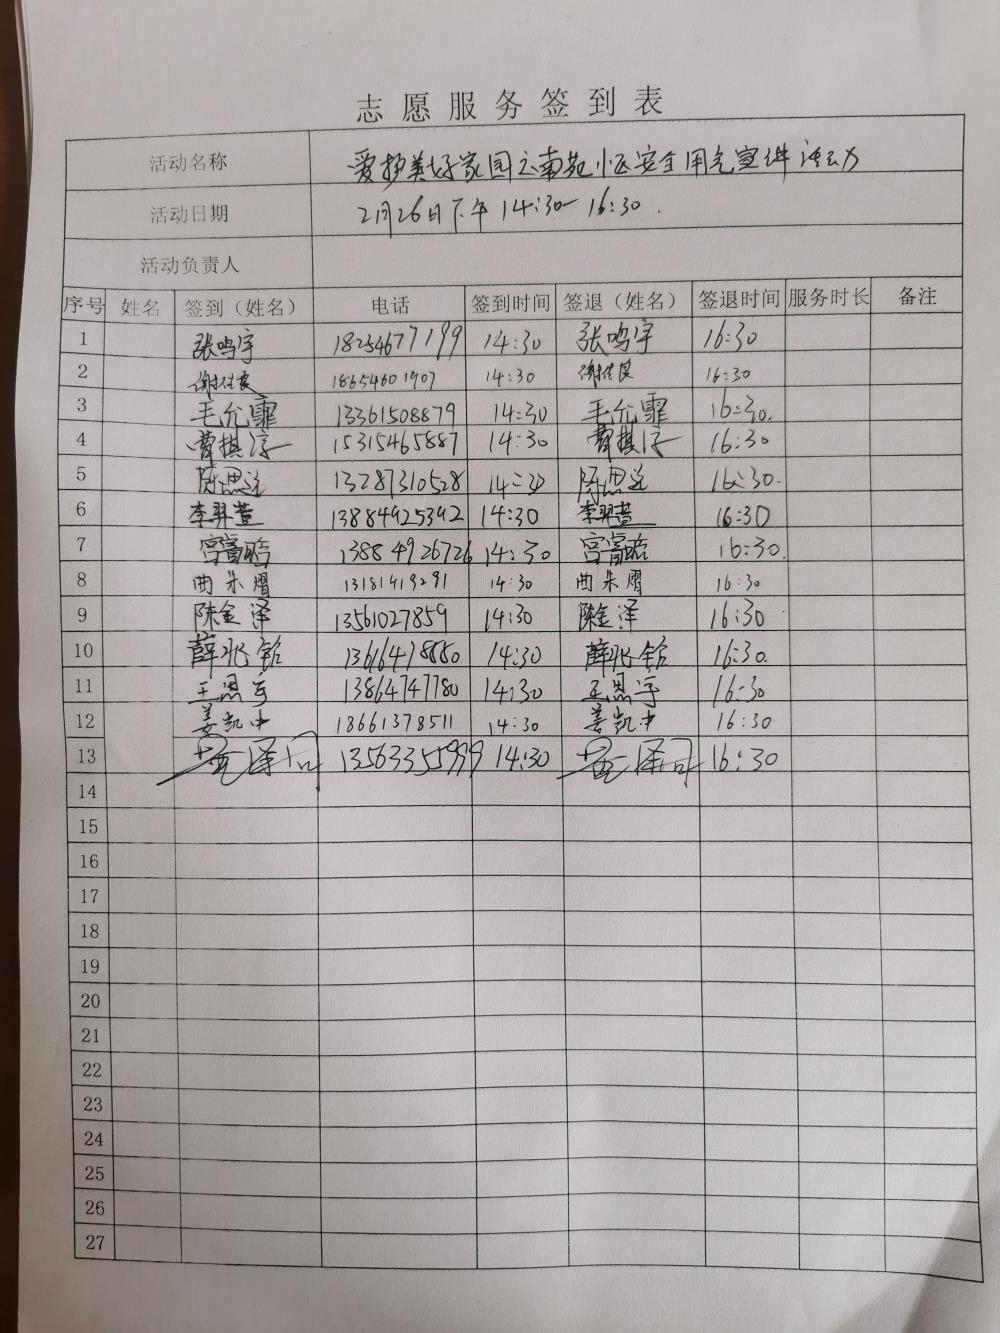 志愿服务签到表
活动名称 爱护美好家园云南苑小区安全用气宣传活动
活动日期 2月26日下午 14:30-16:30.
活动负责人
序号 姓名 签到（姓名） 电话 签到时间 签退（姓名） 签退时间 服务时长 备注
1 张鸣宇 18254677199 14:30 张鸣宇 16:30
2 谢佳良 18654601907 14:30 谢佳良 16:30
3 毛允霏 13361508879 14:30 毛允霏 16:30.
4 曹棋淳 15315465887 14:30 曹棋淳 16:30
5 陈思远 13287310528 14:30 陈思远 16:30.
6 李羿萱 13884925392 14:30 李羿萱 16:30
7 宫富晗 13884926726 14:30 宫富晗 16:30.
8 曲朱熠 14:30 曲朱熠 16:30
9 陈金泽 13561027859 14:30 陈金泽 16:30
10 薛兆铭 13616478880 14:30 薛兆铭 16:30.
11 王恩宇 13864747780 14:30 王恩宇 16:30
12 姜凯中 18661378511 14:30 姜凯中 16:30
13 13563355999 14:30 16:30
14
15
16
17
18
19
20
21
22
23
24
25
26
27